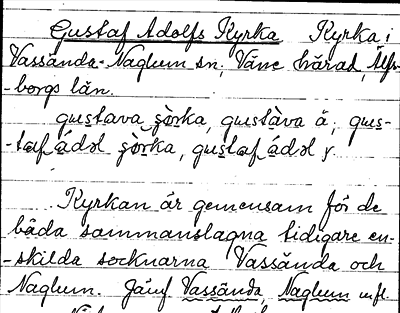 Gustaf Adolfs Kyrka Kyrka i
Vassända-Naglum sn, Väne härad, Älfs-
-borgs län.
gustava şò̱rka, gustàva å, gus-
-taf ádɔl şò̱rka, gustaf ádɔl
Kyrkan är gemensam för de
båda sammanslagna tidigare en-
-skilda socknarna Vassända och
Naglum. Jämf Vassända, Naglum